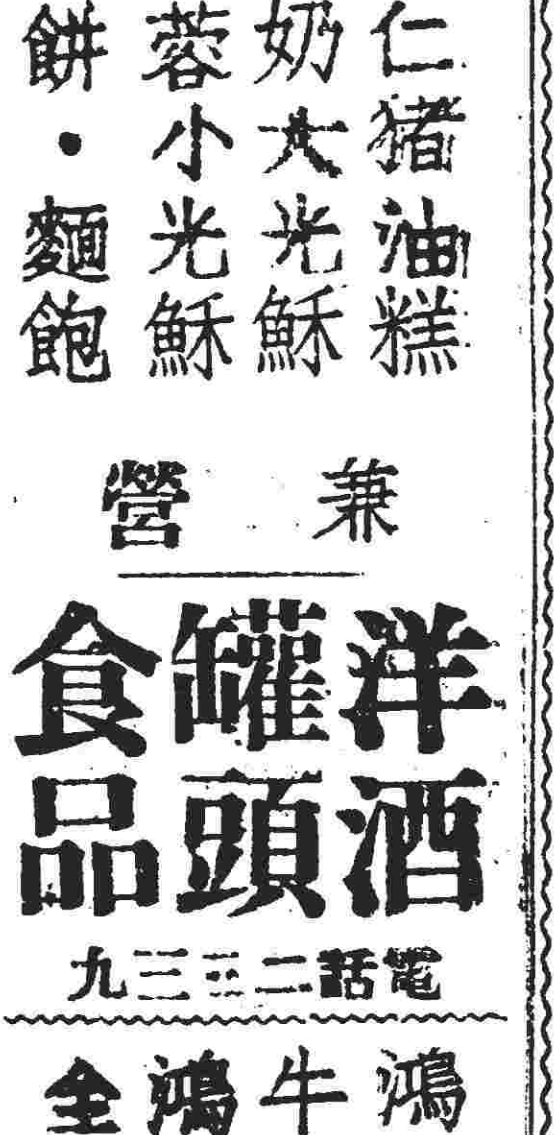 仁猪油糕
奶大光穌
蓉小光穌
餅・麵飽
兼營
洋酒
罐頭
食品
電話二三三九
鴻
牛
鴻
全